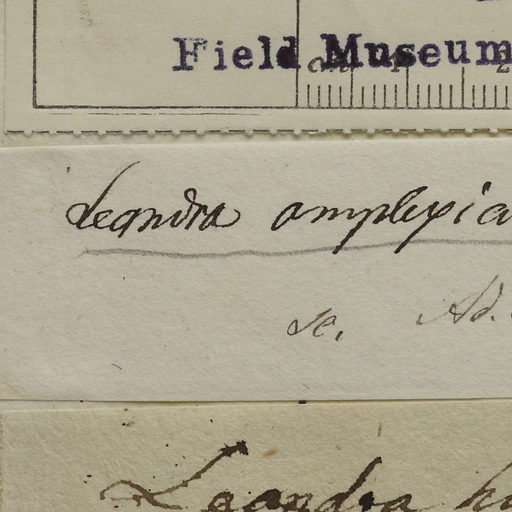 Field Museum
cm 1 2
Leandra amplexica
se. Ad.
Leandra